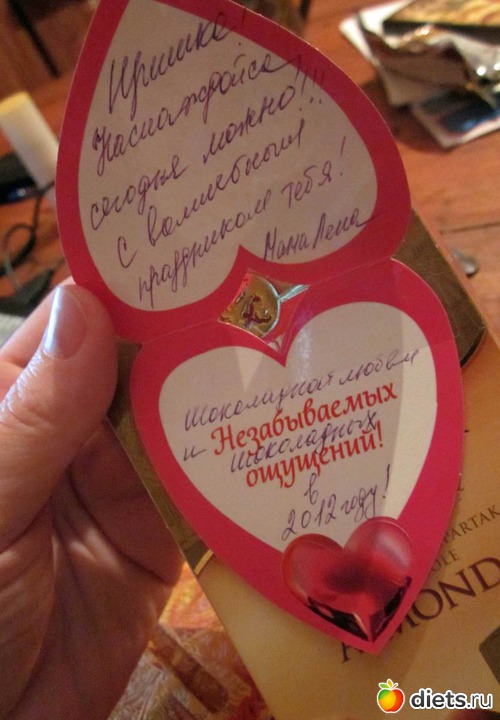 Иришка!
Наслаждайся
сегодня можно!!!
С волшебным
праздником тебя!
Мама Лена
Шоколадной любви
и Незабываемых
шоколадных
ощущений!
в
2012 году!
SPARTAK
OLE
MOND
diets.ru